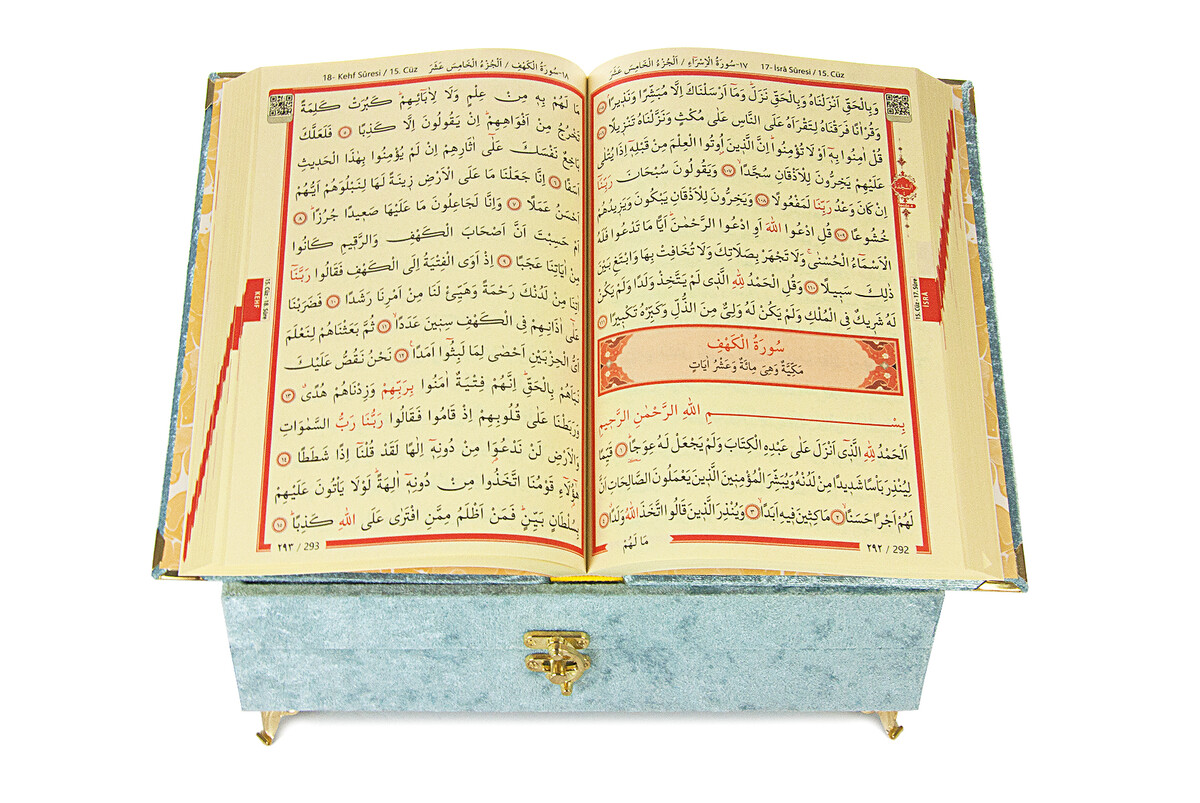 ١٧-سُورَةُ الْاِسْرَاءِ / اَلْجُزْءُ الْخَامِسَ عَشَرَ 17- İsrâ Sûresi / 15. Cüz
وَبِالْحَقِّ اَنْزَلْنَاهُ وَبِالْحَقِّ نَزَلَۜ وَمَٓا اَرْسَلْنَاكَ اِلَّا مُبَشِّرًا وَنَذ۪يرًاۢ ﴿١٠٥﴾
وَقُرْاٰنًا فَرَقْنَاهُ لِتَقْرَاَهُ عَلَى النَّاسِ عَلٰى مُكْثٍ وَنَزَّلْنَاهُ تَنْز۪يلًا ﴿١٠٦﴾
قُلْ اٰمِنُوا بِه۪ٓ اَوْ لَا تُؤْمِنُواۜ اِنَّ الَّذ۪ينَ اُو۫تُوا الْعِلْمَ مِنْ قَبْلِه۪ٓ اِذَا يُتْلٰى
عَلَيْهِمْ يَخِرُّونَ لِلْاَذْقَانِ سُجَّدًاۙ ﴿١٠٧﴾ وَيَقُولُونَ سُبْحَانَ رَبِّنَٓا
اِنْ كَانَ وَعْدُ رَبِّنَا لَمَفْعُولًا ﴿١٠٨﴾ وَيَخِرُّونَ لِلْاَذْقَانِ يَبْكُونَ وَيَز۪يدُهُمْ
خُشُوعًا ﴿١٠٩﴾ قُلِ ادْعُوا اللّٰهَ اَوِ ادْعُوا الرَّحْمٰنَۜ اَيًّا مَا تَدْعُوا فَلَهُ
الْاَسْمَٓاءُ الْحُسْنٰىۚ وَلَا تَجْهَرْ بِصَلَاتِكَ وَلَا تُخَافِتْ بِهَا وَابْتَغِ بَيْنَ
ذٰلِكَ سَب۪يلًا ﴿١١٠﴾ وَقُلِ الْحَمْدُ لِلّٰهِ الَّذ۪ي لَمْ يَتَّخِذْ وَلَدًا وَلَمْ يَكُنْ
لَهُ شَر۪يكٌ فِي الْمُلْكِ وَلَمْ يَكُنْ لَهُ وَلِيٌّ مِنَ الذُّلِّ وَكَبِّرْهُ تَكْب۪يرًا ﴿١١١﴾
سُورَةُ الْكَهْفِ
مَكِّيَّةٌ وَهِيَ مِائَةٌ وَعَشْرُ اٰيَاتٍ
بِسْمِ اللّٰهِ الرَّحْمٰنِ الرَّح۪يمِ
اَلْحَمْدُ لِلّٰهِ الَّذ۪ٓي اَنْزَلَ عَلٰى عَبْدِهِ الْكِتَابَ وَلَمْ يَجْعَلْ لَهُ عِوَجًاۜ ﴿١﴾ قَيِّمًا
لِيُنْذِرَ بَأْسًا شَد۪يدًا مِنْ لَدُنْهُ وَيُبَشِّرَ الْمُؤْمِن۪ينَ الَّذ۪ينَ يَعْمَلُونَ الصَّالِحَاتِ اَنَّ
لَهُمْ اَجْرًا حَسَنًاۙ ﴿٢﴾ مَاكِث۪ينَ ف۪يهِ اَبَدًاۙ ﴿٣﴾ وَيُنْذِرَ الَّذ۪ينَ قَالُوا اتَّخَذَ اللّٰهُ وَلَدًاۗ ﴿٤﴾
مَا لَهُمْ
٢٩٢ / 292
15. Cüz - 17. Sûre
İSRÂ
١٨-سُورَةُ الْكَهْفِ / اَلْجُزْءُ الْخَامِسَ عَشَرَ 18- Kehf Sûresi / 15. Cüz
مَا لَهُمْ بِه۪ مِنْ عِلْمٍ وَلَا لِاٰبَٓائِهِمْۜ كَبُرَتْ كَلِمَةً
تَخْرُجُ مِنْ اَفْوَاهِهِمْۜ اِنْ يَقُولُونَ اِلَّا كَذِبًا ﴿٥﴾ فَلَعَلَّكَ
بَاخِعٌ نَفْسَكَ عَلٰٓى اٰثَارِهِمْ اِنْ لَمْ يُؤْمِنُوا بِهٰذَا الْحَد۪يثِ
اَسَفًا ﴿٦﴾ اِنَّا جَعَلْنَا مَا عَلَى الْاَرْضِ ز۪ينَةً لَهَا لِنَبْلُوَهُمْ اَيُّهُمْ
اَحْسَنُ عَمَلًا ﴿٧﴾ وَاِنَّا لَجَاعِلُونَ مَا عَلَيْهَا صَع۪يدًا جُرُزًاۜ ﴿٨﴾
اَمْ حَسِبْتَ اَنَّ اَصْحَابَ الْكَهْفِ وَالرَّق۪يمِ كَانُوا
مِنْ اٰيَاتِنَا عَجَبًا ﴿٩﴾ اِذْ اَوَى الْفِتْيَةُ اِلَى الْكَهْفِ فَقَالُوا رَبَّنَٓا
اٰتِنَا مِنْ لَدُنْكَ رَحْمَةً وَهَيِّئْ لَنَا مِنْ اَمْرِنَا رَشَدًا ﴿١٠﴾ فَضَرَبْنَا
عَلٰٓى اٰذَانِهِمْ فِي الْكَهْفِ سِن۪ينَ عَدَدًاۙ ﴿١١﴾ ثُمَّ بَعَثْنَاهُمْ لِنَعْلَمَ
اَيُّ الْحِزْبَيْنِ اَحْصٰى لِمَا لَبِثُٓوا اَمَدًا۟ ﴿١٢﴾ نَحْنُ نَقُصُّ عَلَيْكَ
نَبَاَهُمْ بِالْحَقِّۜ اِنَّهُمْ فِتْيَةٌ اٰمَنُوا بِرَبِّهِمْ وَزِدْنَاهُمْ هُدًىۗ ﴿١٣﴾
وَرَبَطْنَا عَلٰى قُلُوبِهِمْ اِذْ قَامُوا فَقَالُوا رَبُّنَا رَبُّ السَّمٰوَاتِ
وَالْاَرْضِ لَنْ نَدْعُوَ۬ا مِنْ دُونِه۪ٓ اِلٰهًا لَقَدْ قُلْنَٓا اِذًا شَطَطًا ﴿١٤﴾
هٰٓؤُ۬لَٓاءِ قَوْمُنَا اتَّخَذُوا مِنْ دُونِه۪ٓ اٰلِهَةًۜ لَوْلَا يَأْتُونَ عَلَيْهِمْ
بِسُلْطَانٍ بَيِّنٍۜ فَمَنْ اَظْلَمُ مِمَّنِ افْتَرٰى عَلَى اللّٰهِ كَذِبًاۜ ﴿١٥﴾
٢٩٣ / 293
15. Cüz - 18. Sûre
KEHF